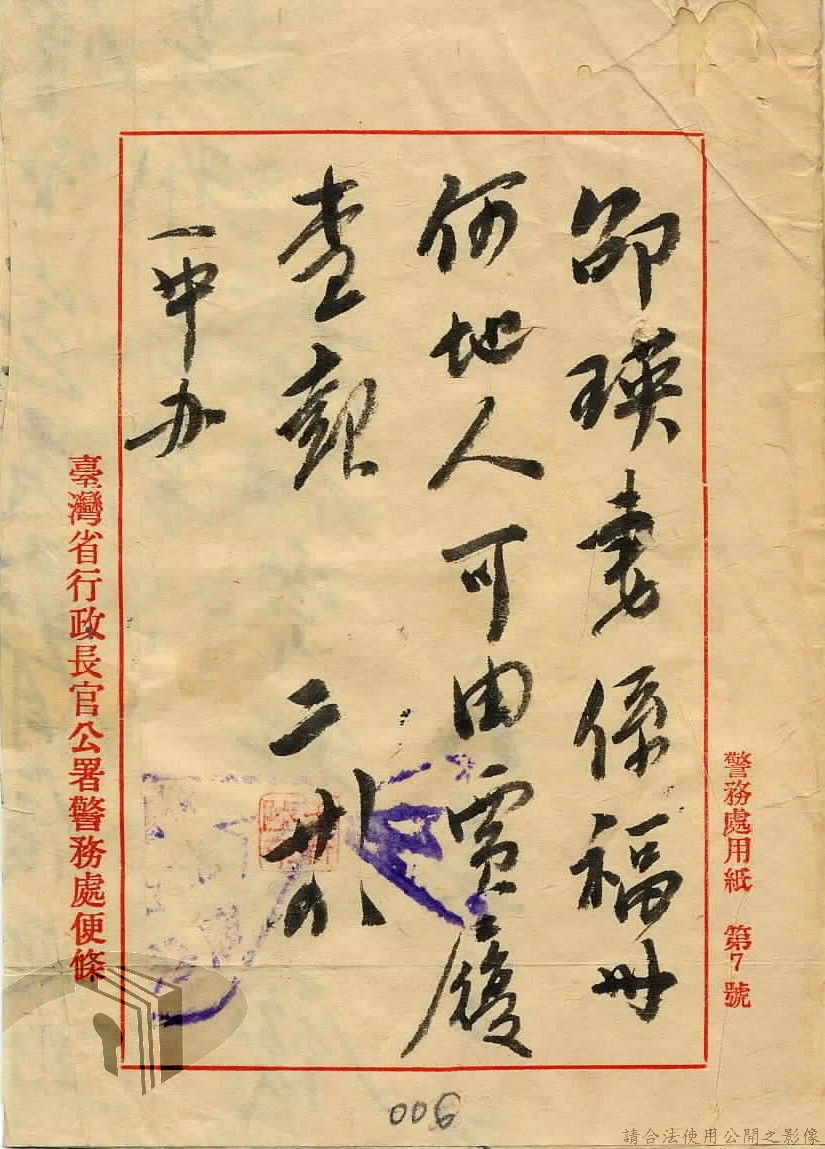 警務處用紙 第7號
邵瑛妻係福州
何地人可由賈履
查報 二廿八
一中办
臺灣省行政長官公署警務處便條
請合法使用公開之影像